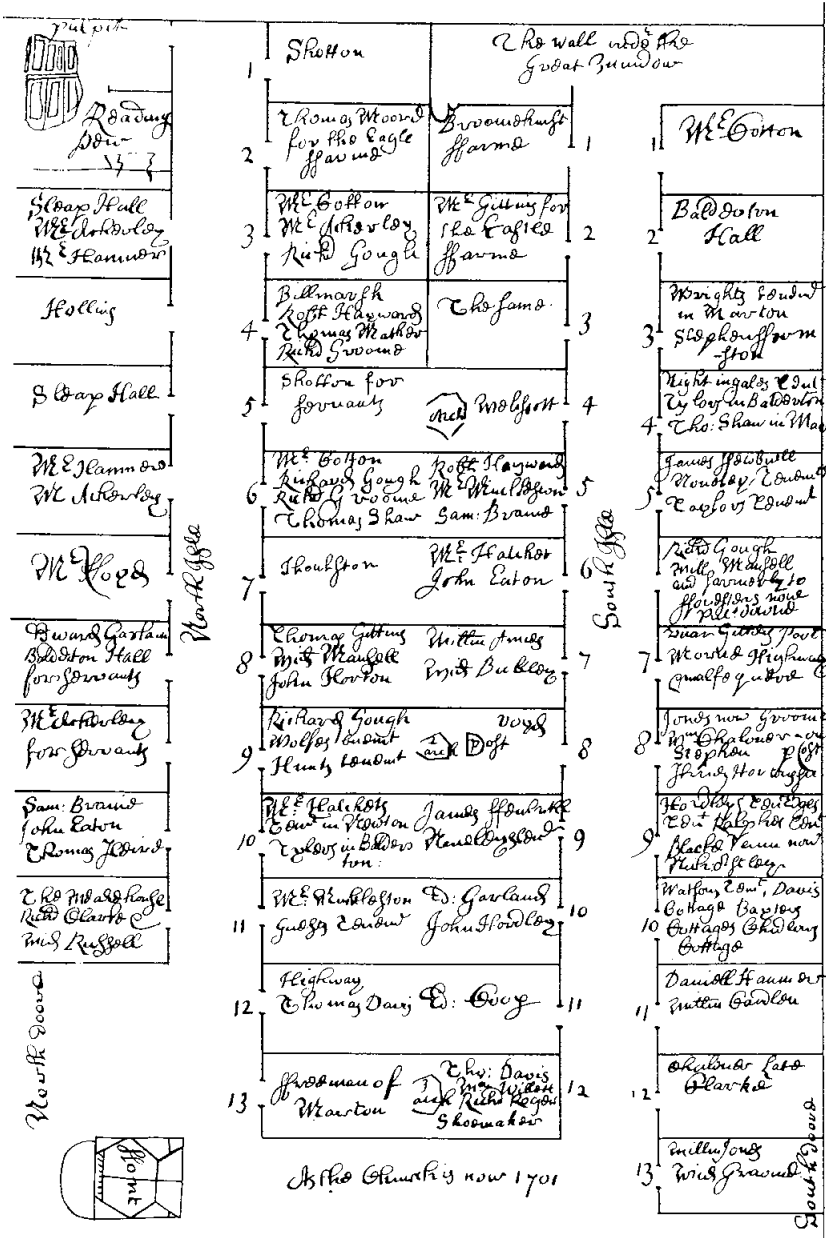 pulpit
Reading
pew
Sleap Hall
Mr. Ackerley
Mr. Hanmer
Hollins
Sleap Hall
Mr. Hanmer
Mr. Ackerley
Mr. Lloyd
Edward Garland
Balderton Hall
for servants
Mr. Ackerley
for servants
Sam: Braine
John Eaton
Thomas
The Meare house
Rich Clarke
Wid. Russell
North doore
ffont
North Isle
1
Shotton
2
Thomas Moore
for the Eagle
ffarme
3
Mr. Cotton
Mr. Ackerley
Rich Gough
4
Billmarsh
Robt. Hayward
Thomas Mather
Rich Groome
5
Shotton for
servants
6
Mr. Cotton
Richard Gough
Rich Groome
Thomas Shaw
7
Thornhton
8
Thomas Gittins
Wid Mansell
John Horton
9
Richard Gough
Wolfes tenemt
Hunts tenemt
10
Mr. Hatchets
Tenemt in Newton
Tylers in Balder
ton:
11
Mr. Muckleston
Guests Tenemt
12
Highway
Thomas Davis
13
ffreeman of
Marton
The wall under the
Great Window
1
Broomehurst
ffarme
2
Mr. Gittins for
the Castle
ffarme
3
The same
4
Arch
Welshott
5
Robt. Hayward
Mr. Muckleston
Sam: Braine
6
Mr. Hatchet
John Eaton
7
Willm Amies
Wid Bickley
8
voyd
arch
Post
9
James ffenwick
10
Ed: Garland
John Hordley
11
Ed: Coop
12
Tho: Davis
Wm. Willett
arch
Rich Roger
Shoemaker
As the Church is now 1701
South Isle
1
Mr. Cotton
2
Balderton
Hall
3
Wrights tenemt
in Marton
Stephen fform
-ston
4
Nightingales Tenemt
Tylors in Balderton
Tho: Shaw in Mar
5
James ffewtrell
Noneley Tenemt
Taylors Tenemt
6
Rich Gough
Will. Mansell
and formerly to
7
Highway
8
Jones now Groome
Wm. Chaloner
Stephen
post
9
Hordleys Tenemt
10
Watsons Tenemt, Davis
Cottage Baxters
Cottages Chidlows
Cottage
11
Daniell Hanmer
Willm Cawlen
12
Chaloner late
Clarke
13
Willm Jones
Wid Groome
South doore